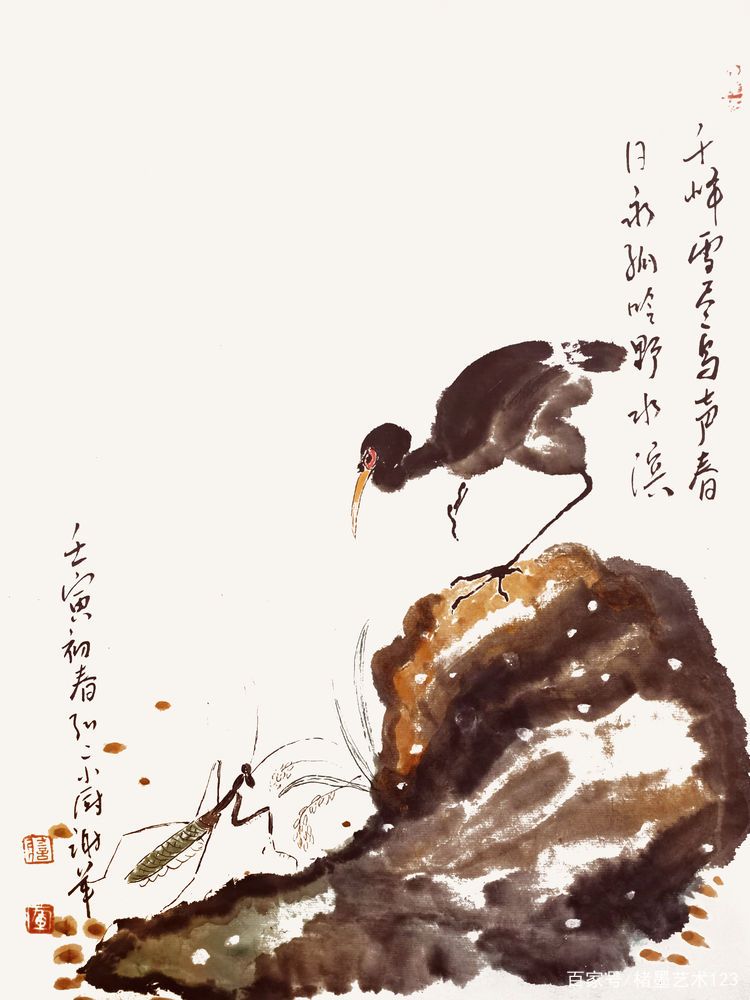 千峰雪尽鸟声春
日永孤吟野水滨
壬寅初春弘一小厨谢华
百家号/楮墨艺术123